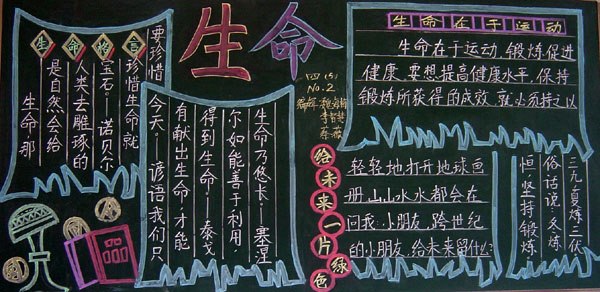 生命
生命格言
生命那
是自然会给
人类去雕琢的
宝石—诺贝尔
珍惜生命就
要珍惜
今天—谚语我们只
有献出生命,才能
得到生命—泰戈
尔如能善于利用,
生命乃悠长—塞涅
No.2
编辑:
生命在于运动
生命在于运动,锻炼促进
健康,要想提高健康水平,保持
锻炼所获得的成效,就必须持之以
恒坚持锻炼
俗话说:冬炼
三九夏炼三伏
给未来一片绿色
轻轻地打开地球画
册,山山水水都会在
问我:小朋友,跨世纪
的小朋友,给未来留什么?